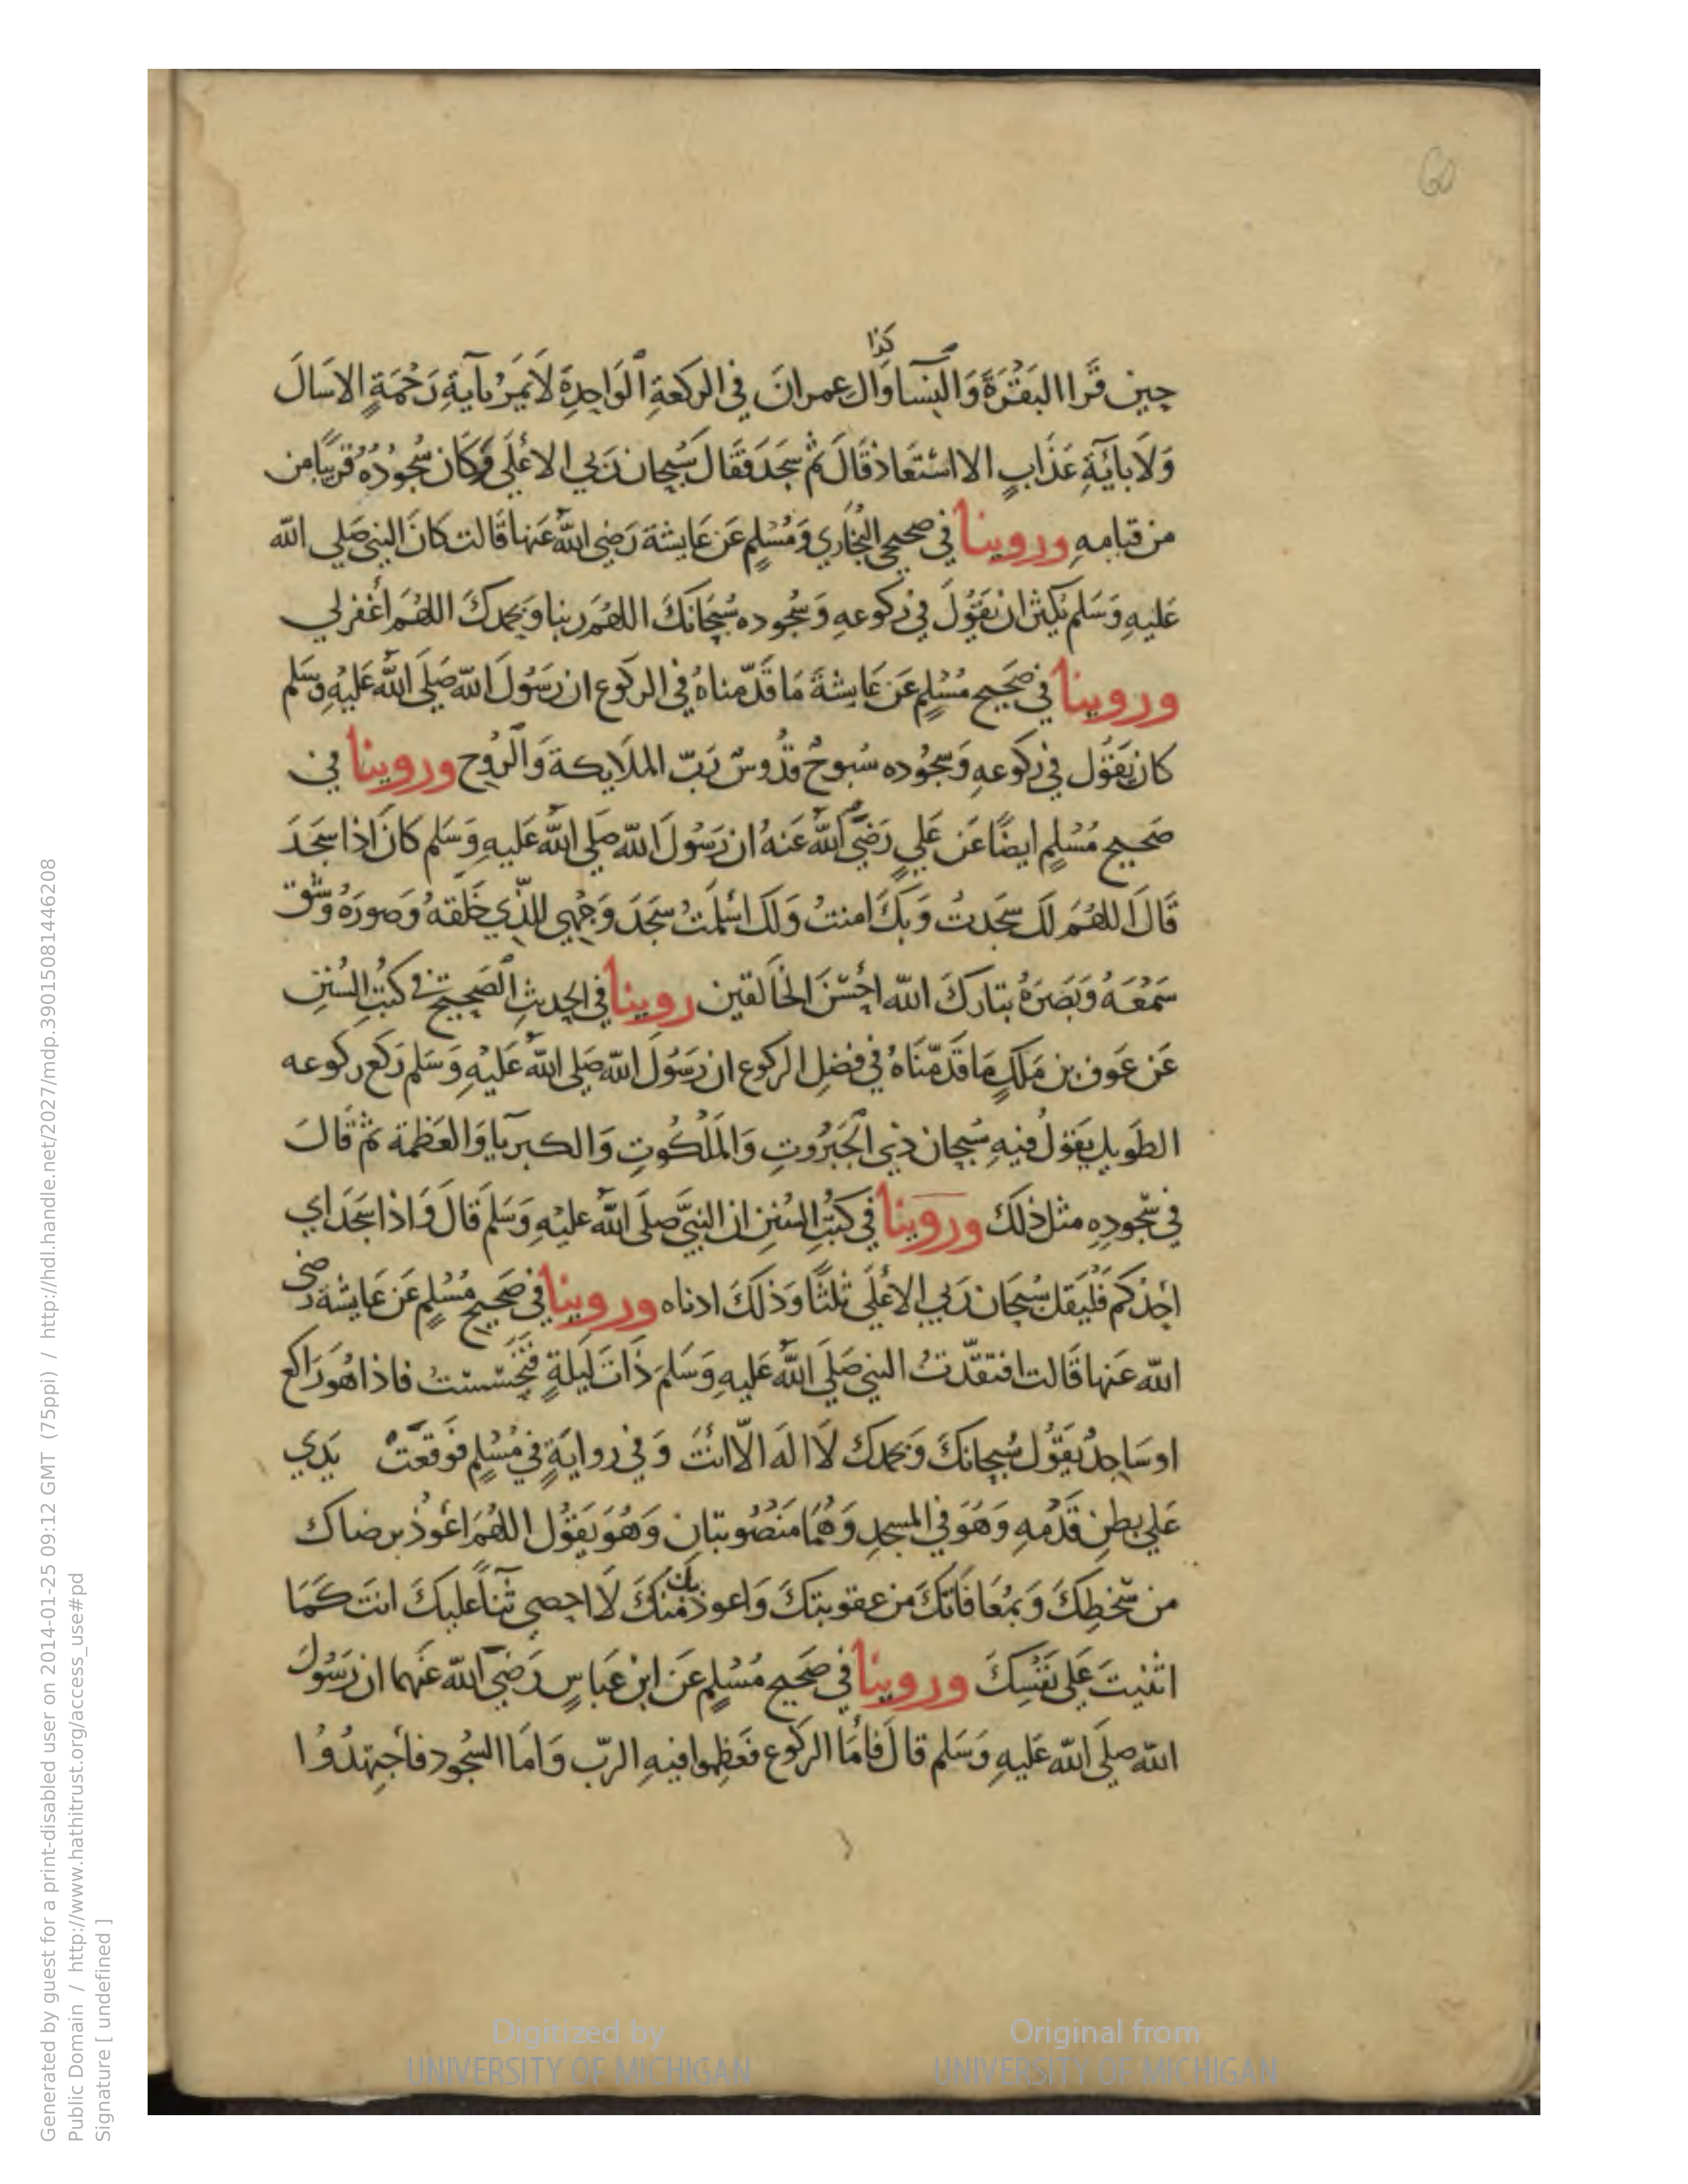 60
كذا
حين قَرا البَقَرَةَ وَالنِسا وَال عمرانَ في الركعةِ الوَاحِدِةَ لَا يَمَرُ بآيةِ رَحْمَةٍ الا سَالَ
وَلَا بآيَةِ عَذَابٍ الا استَعَاذ قَالَ ثم سَجَدَ فَقَالَ سُبحان رَبي الاعْلَى وَكَان سُجُودُهُ قريبًا من
من قيامهِ وروينا في صحيحي البُخَاري وَمُسْلِمٍ عَن عَايشةَ رَضي اللهُ عَنها قَالت كَانَ النبي صَلي الله
عَليهِ وَسَلم يُكثر ان يَقُولَ في رُكوعهِ وَسُجُوده سُبْحَانكَ اللهُمَ ربنا وَبحمدكَ اللهُمَ أغفر لي
وروينا في صَحيح مُسْلِمٍ عَن عَايشةَ مَا قَدّمناهُ في الركوع ان رَسُولَ الله صَلَي اللهُ عَليهِ وسَلم
كان يَقوُل في رُكوعهِ وَسجُوده سُبوحٌ قدُوسٌ رَبّ الملَايكة وَالرُوح وروينا في
صَحيح مُسْلِمٍ ايضًا عَن عَليٍ رَضيَ اللهُ عَنهُ ان رَسُولَ الله صَلي اللهُ عَليهِ وَسَلم كَانَ اذا سَجَدَ
قَالَ اللهُمَ لَكَ سَجَدتُ وَبكَ امنتُ وَلَكَ اسْلمَتُ سَجَدَ وَجْهي للذّي خَلَقهُ وَصورَهُ وَشق
سَمْعَهُ وَبَصَرَهُ تبَاركَ الله احْسَنَ الخَالقين روينا في الحَديثِ الصَحيح في كتُبِ السُنَنِ
عَن عَوف بن مَلكٍ مَا قَدّمْنَاهُ في فضلِ الركوع ان رَسُولَ الله صَلي اللهُ عَليْهِ وَسَلم رَكعَ ركوعه
الطَويل يَقولُ فيهِ سُبحان ذي الجَبَرُوتِ وَالمَلَكُوتِ وَالكبريا وَالعَظمَة ثم قَالَ
في سجُودِهِ مثل ذلَكَ وروينا في كُتبِ السُنَن ان النبيَّ صَلَي اللهُ عليْهِ وَسَلَم قَالَ وَاذا سَجَدَ اي
احَدُكم فَلْيَقل سُبْحَان رَبي الاعْلَي ثَلثًا وَذَلكَ ادناه وروينا في صَحيح مُسْلمٍ عَن عَايشةَ رَضي
الله عَنها قَالت افتقدّتُ النبي صَلَي اللهُ عَليهِ وَسَلمَ ذَاتَ لَيلَةٍ فَتَحَسّستُ فاذا هُوَ رَاكع
او سَاجدٌ يَقُول سُبحانكَ وَبحمدكَ لَا الهَ الّا انْتَ وَفي روايَةٍ في مُسْلمٍ فوَقعَتْ يَدي
عَلي بطنِ قَدَمهِ وَهُوَ في المسجدِ وَهُمَا مَنصُوبَتان وَهُوَ يَقوُل اللهُمَ اعُوذُ برضاك
من سَخطكَ وَبمُعَافَاتكَ من عقوبتكَ وَاعوذ بك منكَ لَا احصي ثنَآً عَليكَ انتَ كَمَا
اثنيتَ عَلي نَفْسِكَ وروينا في صَحيح مُسْلمٍ عَن ابنِ عَباسٍ رَضيَ الله عَنهما ان رَسُولَ
الله صلَي الله عَليهِ وَسَلم قالَ فامَا الركوع فَعَظموا فيهِ الربّ وَامَا السُجُود فأجتهدُوا
Digitized by UNIVERSITY OF MICHIGAN
Original from UNIVERSITY OF MICHIGAN
Generated by guest for a print-disabled user on 2014-01-25 09:12 GMT (75ppi) / http://hdl.handle.net/2027/mdp.39015081446208
Public Domain / http://www.hathitrust.org/access_use#pd
Signature [ undefined ]